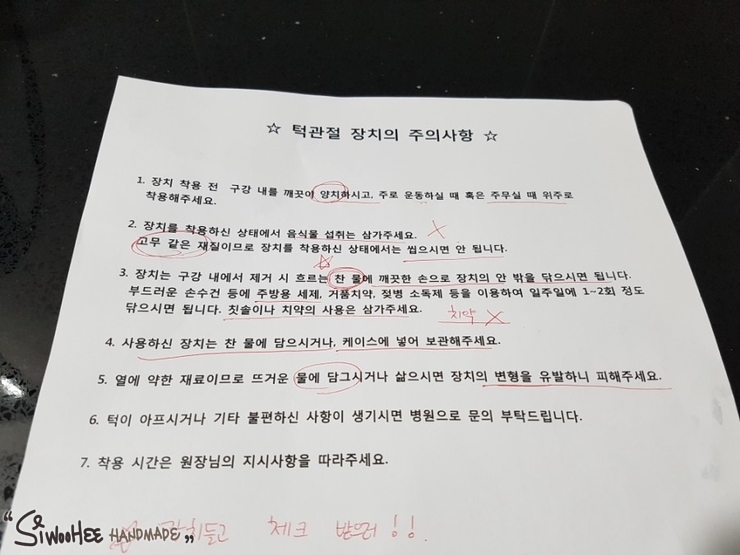 ☆ 턱관절 장치의 주의사항 ☆
1. 장치 착용 전 구강 내를 깨끗이 양치하시고, 주로 운동하실 때 혹은 주무실 때 위주로
착용해주세요.
2. 장치를 착용하신 상태에서 음식물 섭취는 삼가주세요. X
고무 같은 재질이므로 장치를 착용하신 상태에서는 씹으시면 안 됩니다.
☆
3. 장치는 구강 내에서 제거 시 흐르는 찬 물에 깨끗한 손으로 장치의 안 밖을 닦으시면 됩니다.
부드러운 손수건 등에 주방용 세제, 거품치약, 젖병 소독제 등을 이용하여 일주일에 1~2회 정도
닦으시면 됩니다. 칫솔이나 치약의 사용은 삼가주세요. 치약 X
4. 사용하신 장치는 찬 물에 담으시거나, 케이스에 넣어 보관해주세요.
5. 열에 약한 재료이므로 뜨거운 물에 담그시거나 삶으시면 장치의 변형을 유발하니 피해주세요.
6. 턱이 아프시거나 기타 불편하신 사항이 생기시면 병원으로 문의 부탁드립니다.
7. 착용 시간은 원장님의 지시사항을 따라주세요.
장치들고 체크 받으러!!
"SiwooHee HANDMADE"